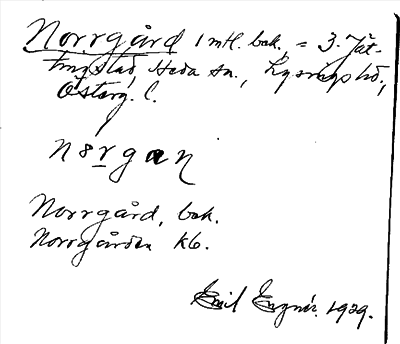 Norrgård 1 mtl. bak. = 3. Jät-
tingstad, Heda sn., Lysings hd,
Österg. l.
n8rgan
Norrgård, bak.
Norrgården kb.
Emil 1929.